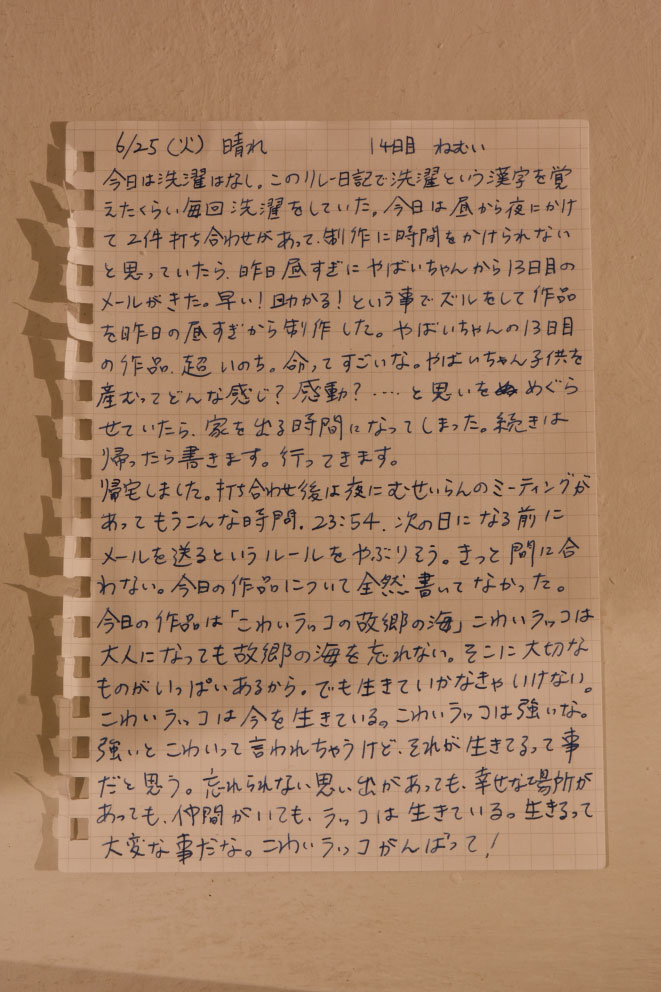 6/25(火) 晴れ 14日目 ねむい
今日は洗濯はなし。このリレー日記で洗濯という漢字を覚
えたくらい毎回洗濯をしていた。今日は昼から夜にかけ
て2件打ち合わせがあって、制作に時間をかけられない
と思っていたら、昨日昼すぎにやばいちゃんから13日目の
メールがきた。早い!助かる!という事でズルをして作品
を昨日の昼すぎから制作した。やばいちゃんの13日目
の作品、超いのち。命ってすごいな。やばいちゃん子供を
産むってどんな感じ?感動?‥‥と思いをめぐら
せていたら、家を出る時間になってしまった。続きは
帰ったら書きます。行ってきます。
帰宅しました。打ち合わせ後は夜にむせいらんのミーティングが
あってもうこんな時間。23:54。次の日になる前に
メールを送るというルールをやぶりそう。きっと間に合
わない。今日の作品について全然書いてなかった。
今日の作品は「こわいラッコの故郷の海」こわいラッコは
大人になっても故郷の海を忘れない。そこに大切な
ものがいっぱいあるから。でも生きていかなきゃいけない。
こわいラッコは今を生きている。こわいラッコは強いな。
強いとこわいって言われちゃうけど、それが生きてるって事
だと思う。忘れられない思い出があっても、幸せな場所が
あっても、仲間がいても、ラッコは生きている。生きるって
大変な事だな。こわいラッコがんばって!